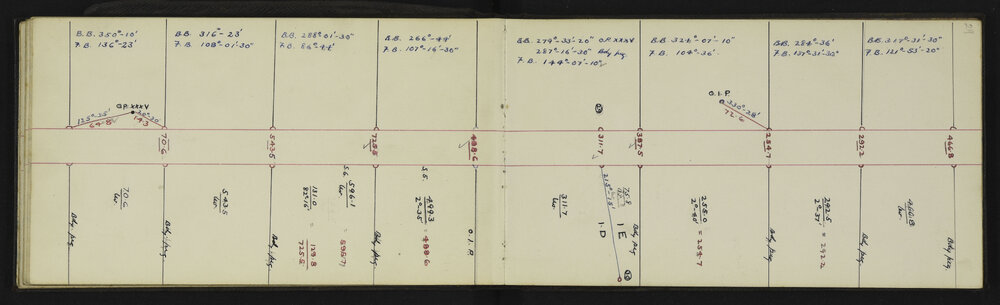 B.B. 350°-10'
F.B. 136°-23'
B.B. 316°-23'
F.B. 108°-01'-30"
B.B. 288°-01'-30"
F.B. 86°-44'
B.B. 266°-44'
F.B. 107°-14'-30"
B.B. 279°-33'-20" O.P. XXXV
287°-14'-30" Bdy peg.
F.B. 144°-07'-10"
B.B. 324°-07'-10"
F.B. 104°-36'
B.B. 284°-36'
F.B. 137°-31'-30"
B.B. 317°-31'-30"
F.B. 121°-53'-20"
O.P. XXXV
125°-35'
64.8
14.3
O.I.P.
330°-28'
72.6
70.6
543.5
725.5
488.6
311.7
387.5
254.7
292.2
466.8
70.6
Lev.
543.5
Lev.
131.0
82°-16'
= 129.8
725.5
5.6
596.1
Lev.
= 595.7
5.5
499.3
2°-35'
= 488.6
311.7
Lev.
215°-15'
75.8
1 D
1 E
255.0
2°-40'
= 254.7
292.5
2°-37'
= 292.2
466.8
Lev.
Bdy. peg.
Bdy. peg.
Bdy. peg.
Bdy. peg.
O.I.P.
Bdy peg
Bdy. peg.
Bdy. peg.
Bdy. peg.